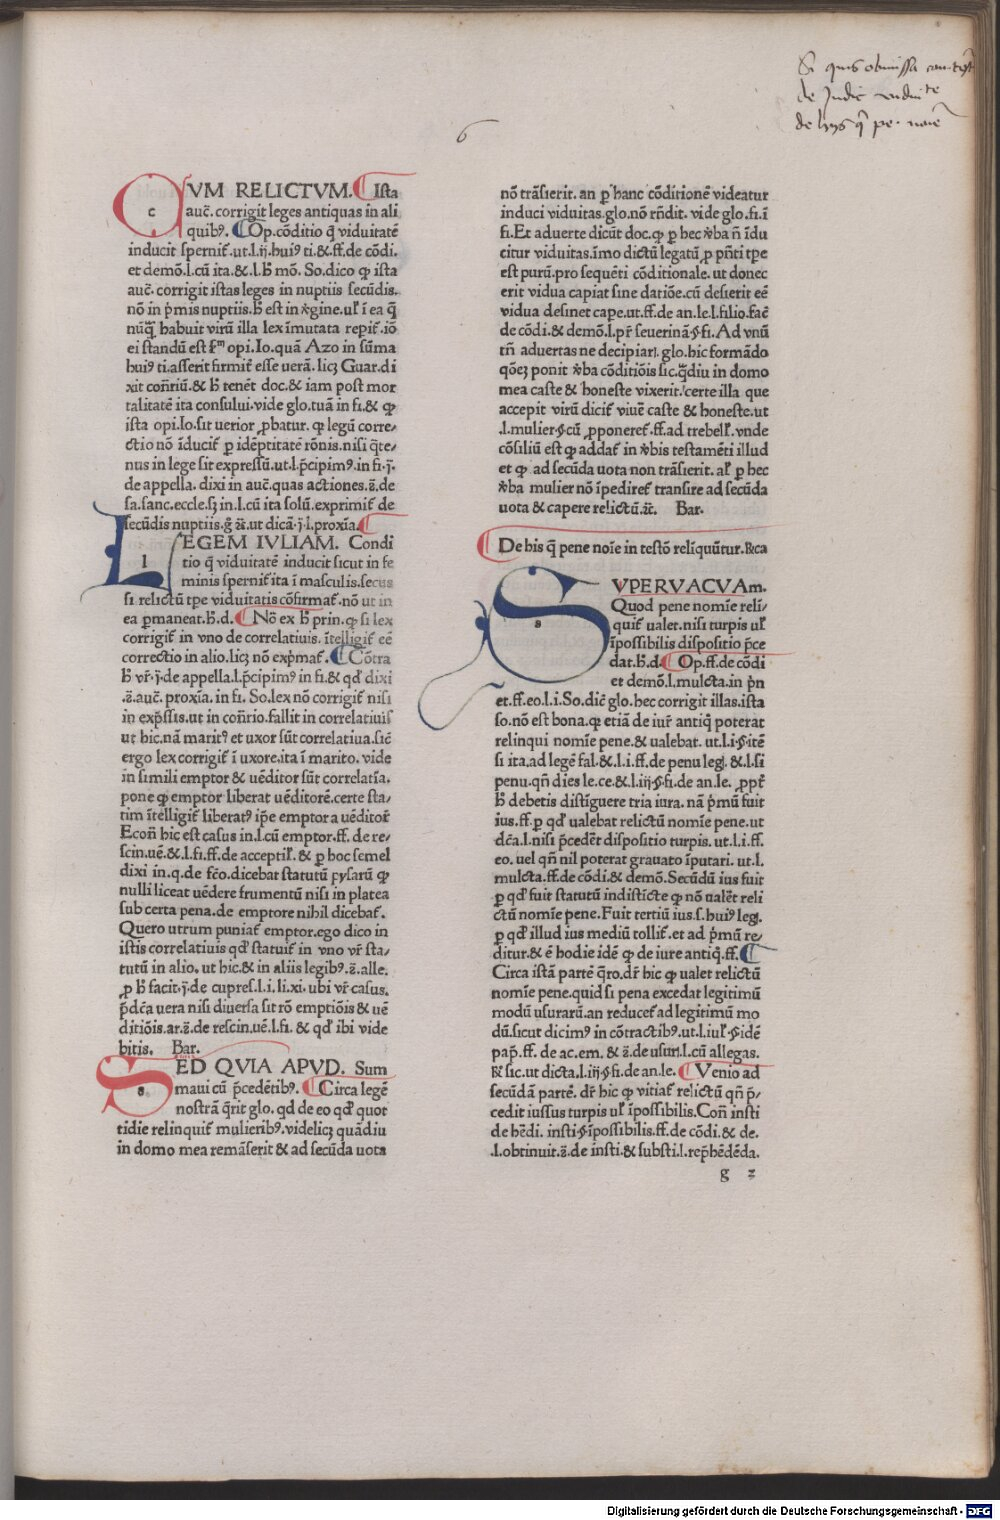 Si quis obmissa
de Iudic
de hys q pe. noie
6
CVM RELICTVM. Ista
c
auc̄. corrigit leges antiquas in ali
quibꝰ. Op. cōditio q̄ viduitatē
inducit spernit̄. ut. l. ij. huiꝰ ti. & ff. de cōdi.
et demō. l. cū ita. & . l. h̄ mō. So. dico ꝙ ista
auc̄. corrigit istas leges in nuptiis secūdis.
nō in p̄mis nuptiis. h̄ est in v̄gine. ul̄ ī ea q̄
nūq̄ habuit virū illa lex īmutata reperit̄. iō
ei standū est s̄m opi. Io. quā Azo in sūma
huiꝰ ti. asserit firmit̄ esse uerā. licꝫ Guar. di
xit cōn̄riū. & h̄ tenēt doc. & iam post mor
talitatē ita consului. vide glo. tuā in fi. & ꝙ
ista opi. Io. sit uerior ꝓbatur. ꝙ legū corre⸗
ctio nō īducit̄ ꝑ idēptitatē rōnis. nisi q̄te⸗
nus in lege sit expressū. ut. l. p̄cipimꝰ. in fi. j̄.
de appella. dixi in auc̄. quas actiones. z̄. de
sa. sanc. eccle. sꝫ in. l. cū ita solū. exprimit̄ de
secūdis nuptiis. ḡ z̄c. ut dicā. j̄. l. proxīa.
LEGEM IVLIAM. Condi
l
tio q̄ viduitatē inducit sicut in fe
minis spernit̄ ita ī masculis. secus
si relictū tp̄e viduitatis cōfirmat̄. nō ut in
ea ꝑmaneat. h̄. d. Nō ex h̄ prin. ꝙ si lex
corrigit̄ in vno de correlatiuis. ītelligit̄ eē
correctio in alio. licꝫ nō exp̄mat̄. Cōtra
h̄ vr̄. j̄. de appella. l. p̄cipimꝰ in fi. & qd̄ dixi
.z̄. auc̄. proxīa. in fi. So. lex nō corrigit̄ nisi
in exp̄ssis. ut in cōn̄rio. fallit in correlatiuis
ut hic. nā maritꝰ et uxor sūt correlatiua. sic̄
ergo lex corrigit̄ ī uxore. ita ī marito. vide
in simili emptor & uēditor sūt correlatīa.
pone ꝙ emptor liberat uēditorē. certe sta⸗
tim ītelligit̄ liberatꝰ ip̄e emptor a uēditor̄
Econ̄ hic est casus in. l. cū emptor. ff. de re⸗
scin. uē. & . l. fi. ff. de acceptil̄. & ꝑ hoc semel
dixi in. q. de fc̄o. dicebat statutū pysarū ꝙ
nulli liceat uēdere frumentū nisi in platea
sub certa pena. de emptore nihil dicebat̄.
Quero utrum puniat̄ emptor. ego dico in
istis correlatiuis qd̄ statuit̄ in vno vr̄ sta⸗
tutū in alio. ut hic. & in aliis legibꝰ. z̄. alle.
ꝓ h̄ facit. j̄. de cupres. l. i. li. xi. ubi vr̄ casus.
p̄dc̄a uera nisi diuersa sit rō emptiōis & uē
ditiōis. ar. z̄. de rescin. uē. l. fi. & qd̄ ibi vide
bitis. Bar.
SED QVIA APVD. Sum
s
maui cū p̄cedētibꝰ. Circa legē
nostrā q̄rit glo. qd de eo qd̄ quot
tidie relinquit̄ mulieribꝰ. videlicꝫ quādiu
in domo mea remāserit & ad secūda uota
nō trāsierit. an ꝑ hanc cōditionē videatur
induci viduitas. glo. nō rn̄dit. vide glo. fi. ī
fi. Et aduerte dicūt doc. ꝙ ꝑ hec v̄ba n̄ īdu
citur viduitas. īmo dictū legatū ꝓ pn̄ti tp̄e
est purū. pro sequēti cōditionale. ut donec
erit vidua capiat sine datiōe. cū desierit eē
vidua desinet cape. ut. ff. de an. le. l. filio. fac̄
de cōdi. & demō. l. pr̄ seuerinā. §. fi. Ad vnū
tn̄ aduertas ne decipiar̄. glo. hic formādo
q̄oēꝫ ponit v̄ba cōditiōis sic. q̄diu in domo
mea caste & honeste vixerit. certe illa que
accepit virū dicit̄ viuē caste & honeste. ut
.l. mulier. §. cū ꝓponeret̄. ff. ad trebell̄. vnde
cōsiliū est ꝙ addat̄ in v̄bis testamēti illud
et ꝙ ad secūda uota non trāsierit. al̄ ꝑ hec
v̄ba mulier nō īpediret̄ transire ad secūda
uota & capere relictū. z̄c. Bar.
De his q̄ pene noīe in testō relīquūtur. Rca
SVPERVACVAm.
s
Quod pene nomīe reli⸗
quit̄ ualet. nisi turpis ul̄
īpossibilis dispositio p̄ce
dat. h̄. d. Op. ff. de cōdi
et demō. l. mulcta. in p̄n
et. ff. eo. l. i. So. dic̄ glo. hec corrigit illas. ista
so. nō est bona. ꝙ etiā de iur̄ antiq̄ poterat
relinqui nomīe pene. & ualebat. ut. l. i. §. itē
si ita. ad legē fal. & . l. i. ff. de penu leḡ. & . l. si
penu. qn̄ dies le. ce. & . l. iij. §. fi. de an. le. ꝓpt̄
h̄ debetis distīguere tria iura. nā p̄mū fuit
ius. ff. ꝑ qd̄ ualebat relictū nomīe pene. ut
dc̄a. l. nisi p̄cedēt dispositio turpis. ut. l. i. ff.
eo. uel qn̄ nil poterat grauato īputari. ut. l.
mulcta. ff. de cōdi. & demō. Secūdū ius fuit
ꝑ qd̄ fuit statutū indistīcte ꝙ nō ualēt reli
ctū nomīe pene. Fuit tertiū ius. s. huiꝰ leḡ.
ꝑ qd̄ illud ius mediū tollit̄. et ad p̄mū re⸗
ditur. & ē hodie idē ꝙ de iure antiq̄. ff.
Circa istā partē q̄ro. dr̄ hic ꝙ ualet relictū
nomīe pene. quid si pena excedat legitimū
modū usurarū. an reducet̄ ad legitimū mo
dū. sicut dicimꝰ in cōtractibꝰ. ut. l. iul̄. §. idē
pap̄. ff. de ac. em. & z̄. de usuri. l. cū allegas.
R̄ sic. ut dicta. l. iij. §. fi. de an. le. Venio ad
secūdā partē. dr̄ hic ꝙ vitiat̄ relictū qn̄ p̄⸗
cedit iussus turpis ul̄ īpossibilis. Con̄ insti
de hēdi. insti. §. īpossibilis. ff. de cōdi. & de.
.l. obtinuit. z̄. de īnsti. & substi. l. rep̄hēdēda.
g z
Digitalisierung gefördert durch die Deutsche Forschungsgemeinschaft - DFG